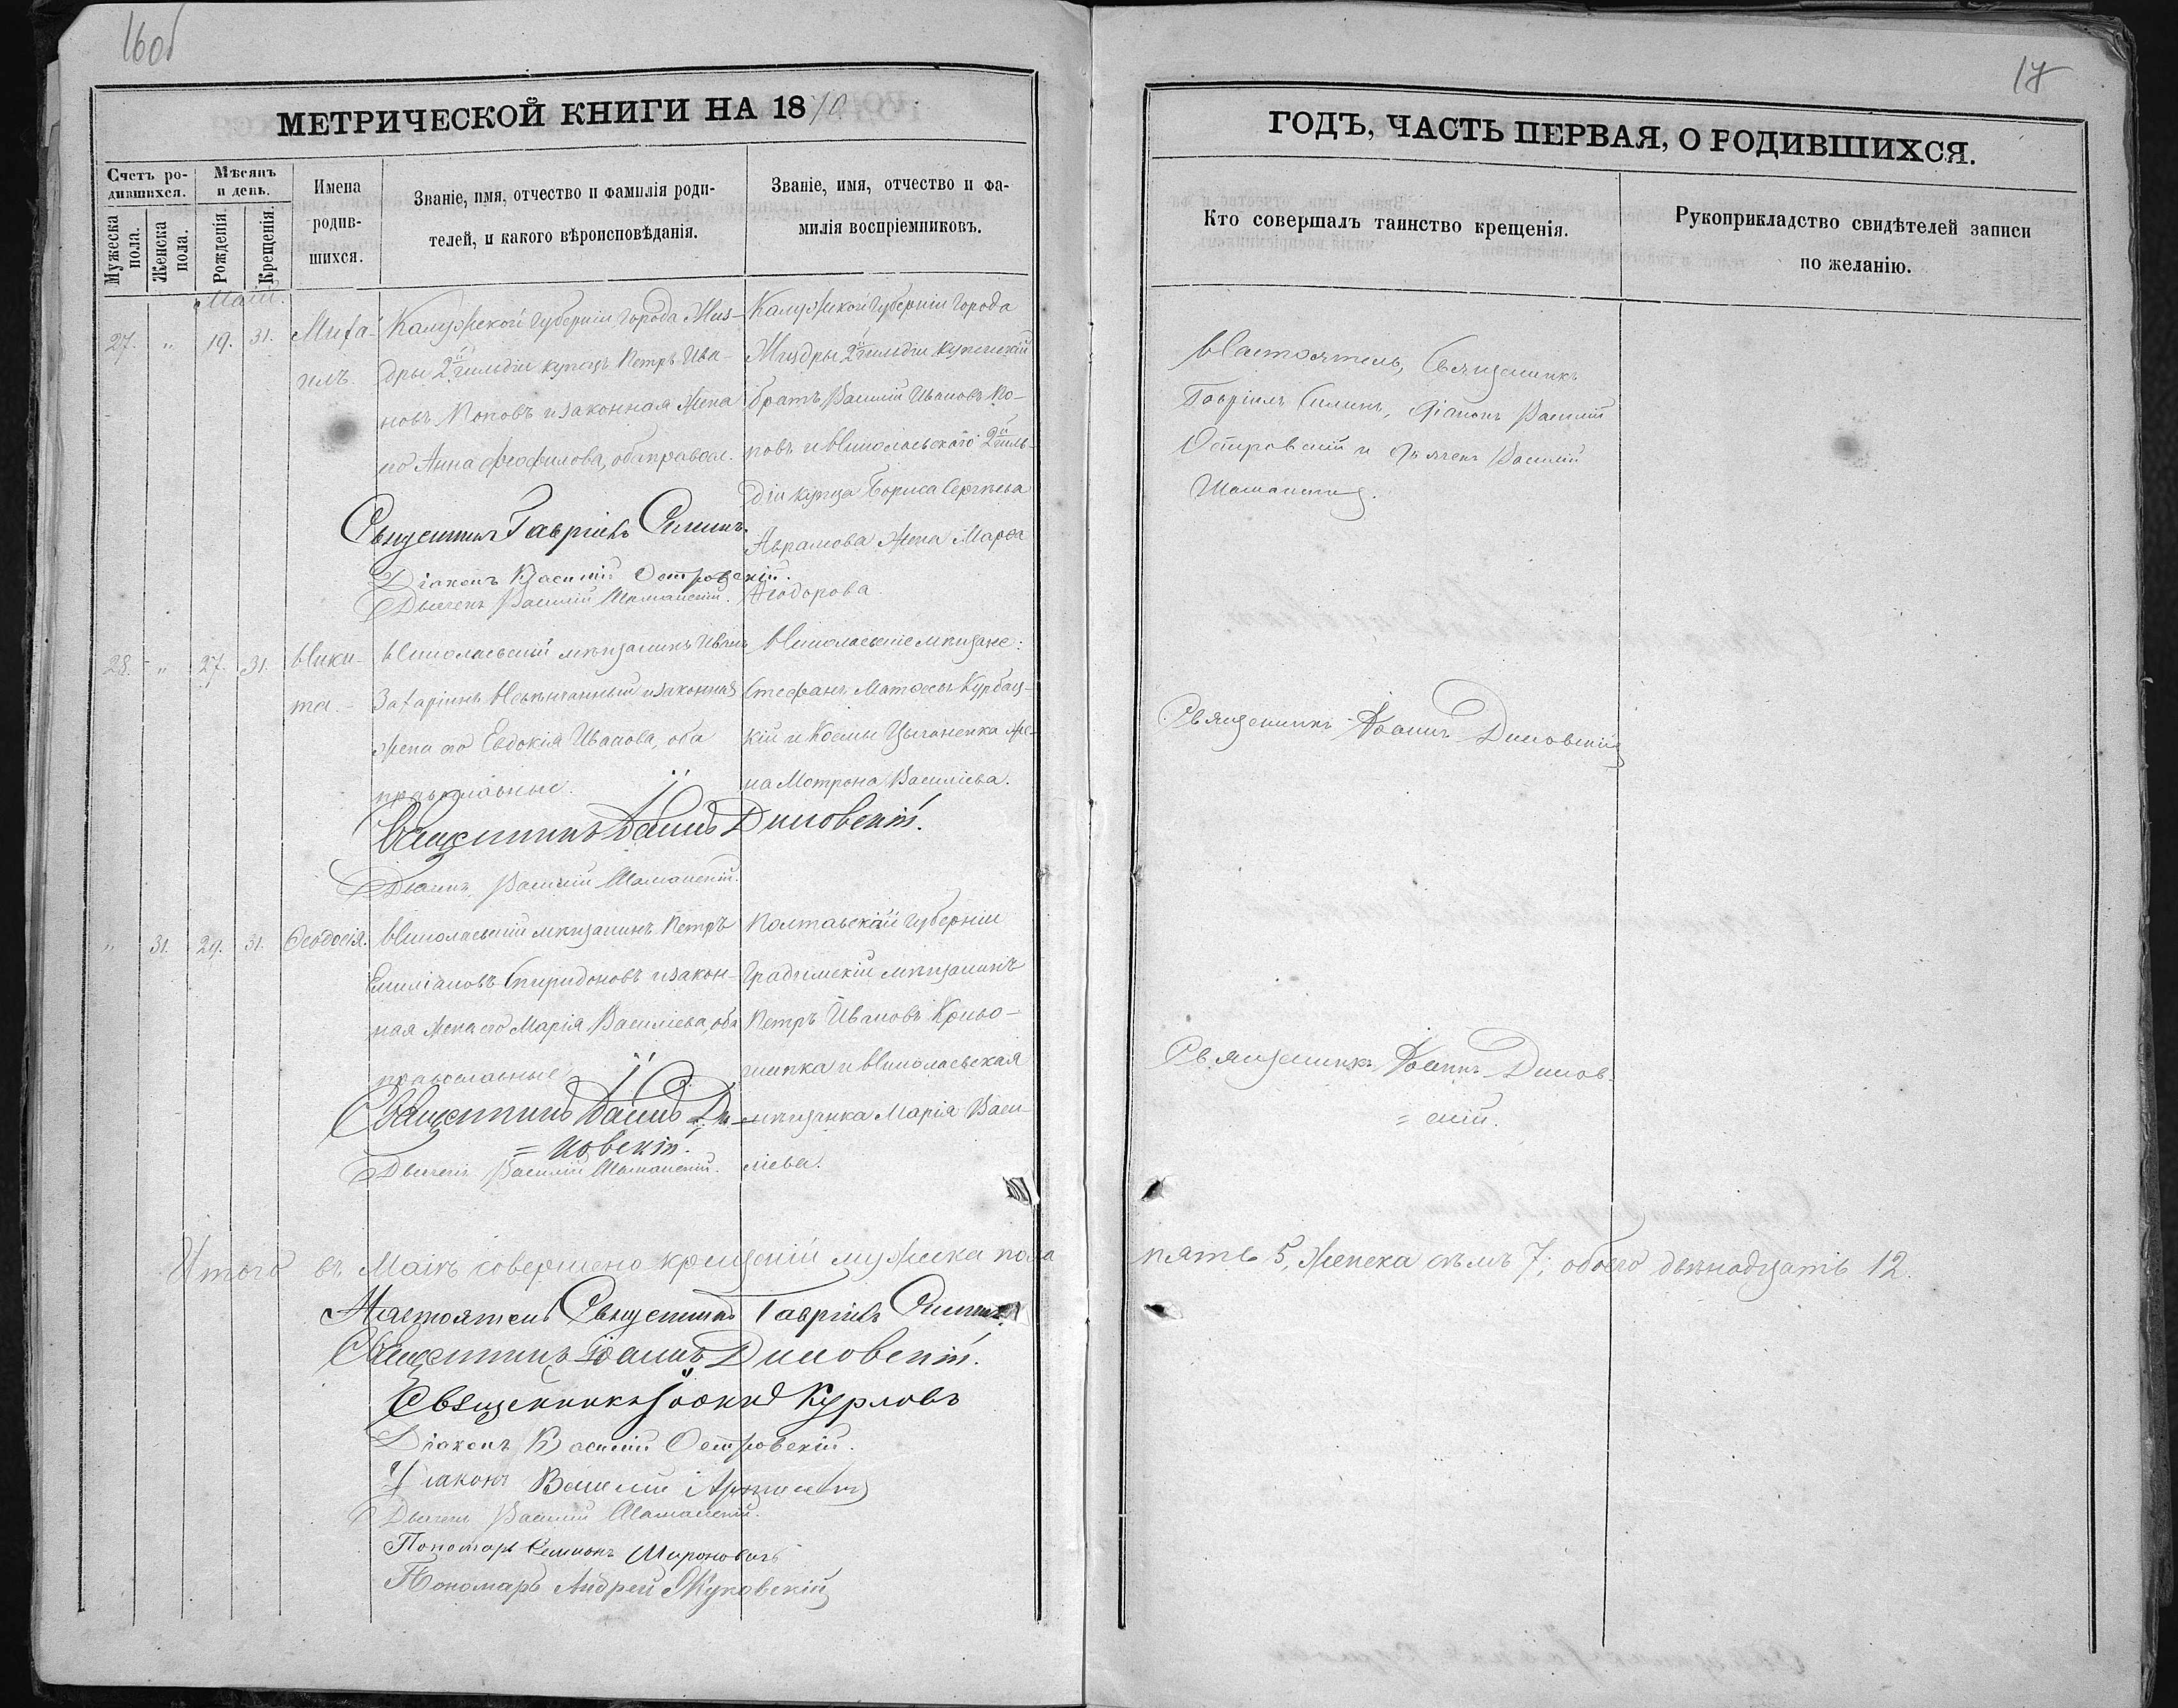 16об
МЕТРИЧЕСКОЙ КНИГИ НА 1870
Счетъ ро-
дившихся.
Мѣсяцъ
и день.
Мужеска
пола.
Женска
пола.
Рожденія.
Крещенія.
Имена
родив-
шихся.
Званіе, имя, отчество и фамилія роди-
телей, и какого вѣроисповѣданія.
Званіе, имя, отчество и фа-
милія воспріемниковъ.
Маій.
27. „ 19. 31.
Миха-
илъ.
Калужской Губерніи Города Жиз-
дры 2й гильдіи купецъ Петръ Ива-
новъ Поповъ и законная жена
его Анна Феофилова, оба правосл.
Священникъ Гавріилъ Силинъ.
Діаконъ Василій Островскій.
Дьячекъ Василій Шаманскій.
Калужской Губерніи Города
Жиздры 2й гильдіи купеческій
братъ Василій Ивановъ По-
повъ и Николаевскаго 2й гиль-
діи купца Бориса Сергѣева
Аврамова жена Марѳа
Ѳеодорова.
28. „ 27. 31.
Ники-
та.
Николаевскій мѣщанинъ Иванъ
Захаріинъ и законная
жена его Евдокія Иванова, оба
православные.
Священникъ Іоаннъ Диковскій.
Дьячекъ Василій Шаманскій.
Николаевскіе мѣщане:
Стефанъ Матѳеевъ Курбац-
кій и Космы Цыганенка же-
на Матрона Василіева.
„ 31. 29. 31.
Ѳеодосія.
Николаевскій мѣщанинъ Петръ
Емиліановъ Спиридоновъ и закон-
ная жена его Марія Василіева, оба
православные
Священникъ Іоаннъ Ди-
= ковскій.
Дьячекъ Василій Шаманскій.
Полтавской Губерніи
Градижскій мѣщанинъ
Петръ Ивановъ Криво-
шапка и Николаевская
мѣщанка Марія Васи-
ліева.
Итого въ Маіѣ совершено крещеній мужеска пола
Настоятель Священникъ Гавріилъ Силинъ.
Священникъ Іоаннъ Диковскій.
Священникъ Іоаннъ Курловъ
Діаконъ Василій Островскій.
Діаконъ Василій
Дьячекъ Василій Шаманскій.
Пономарь Симеонъ Мироновичъ
Пономарь Андрей Жуковскій
17
ГОДЪ, ЧАСТЬ ПЕРВАЯ, О РОДИВШИХСЯ.
Кто совершалъ таинство крещенія.
Рукоприкладство свидѣтелей записи
по желанію.
Настоятель, Священникъ
Гавріилъ Силинъ, Діаконъ Василій
Островскій и Дьячекъ Василій
Шаманскій.
Священникъ Іоаннъ Диковскій
Священникъ Іоаннъ Диков-
= скій.
пять 5, женска семь 7; обоего двѣнадцать 12.